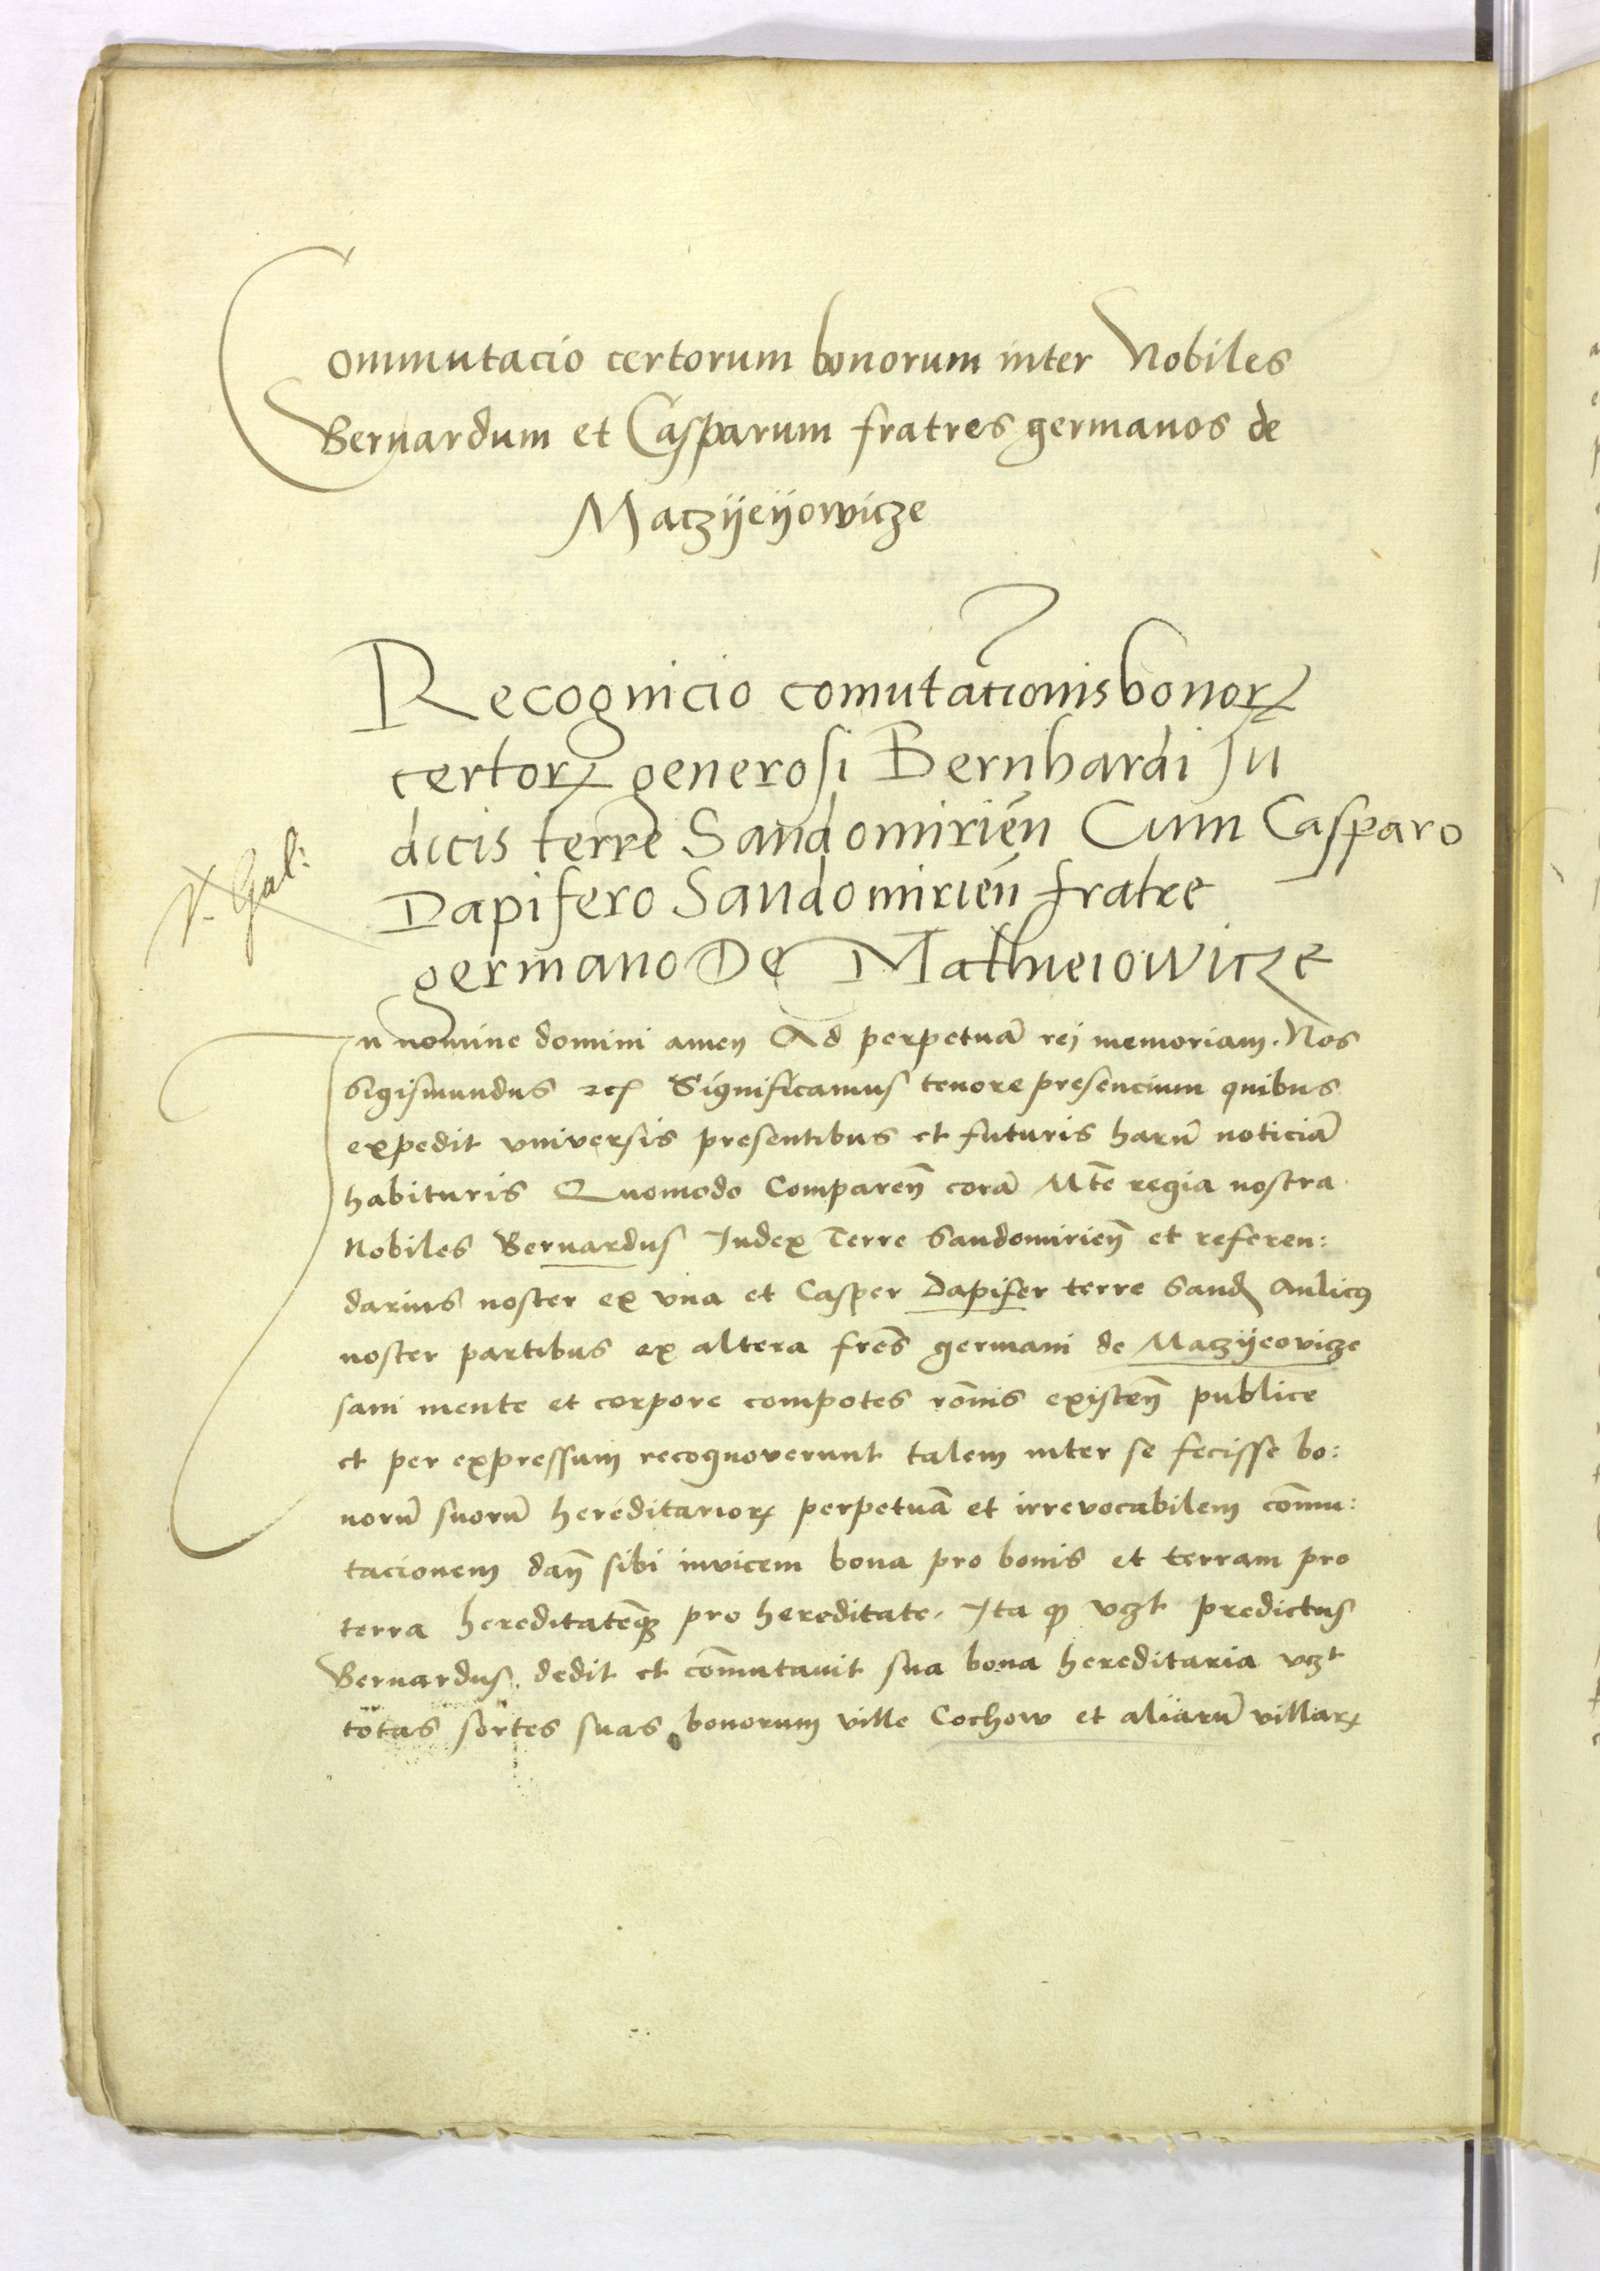 Commutacio certorum bonorum inter Nobiles
Bernardum et Casparum fratres germanos de
Maczÿeÿowicze
Recognicio comutationis bonorꝝ
certorꝝ generosi Bernhardi Ju
dicis terre Sandomirien̄ Cum Casparo
Dapifero Sandomirien̄ fratre
germano De Mathieiowicze
V. Gal:
In nomine domini amen Ad perpetuā rei memoriam. Nos
Sigismundus ꝛcꝭ Significamus tenore presencium quibus
expedit vniversis presentibus et futuris harū noticiā
habituris Quomodo Comparen̄ corā Mte̅ regia nostra
Nobiles Bernardus Judex Terre Sandomirien̄ et referen:
darius noster ex vna et Casper Dapifer terre Sand Aulicꝰ
noster partibus ex altera fres̄ germani de Maczÿeovicze
sani mente et corpore compotes rōnis existen̄ publice
et per expressum recognoverunt talem inter se fecisse bo:
norū suorū hereditariorꝝ perpetuā et irrevocabilem com̄u:
tacionem dan̄ sibi invicem bona pro bonis et terram pro
terra hereditatēqꝫ pro hereditate. Ita ꝙ vcꝫt predictus
Bernardus dedit et com̄utauit sua bona hereditaria vcꝫt
totas sortes suas bonorum ville Cochow et aliarū villarꝝ